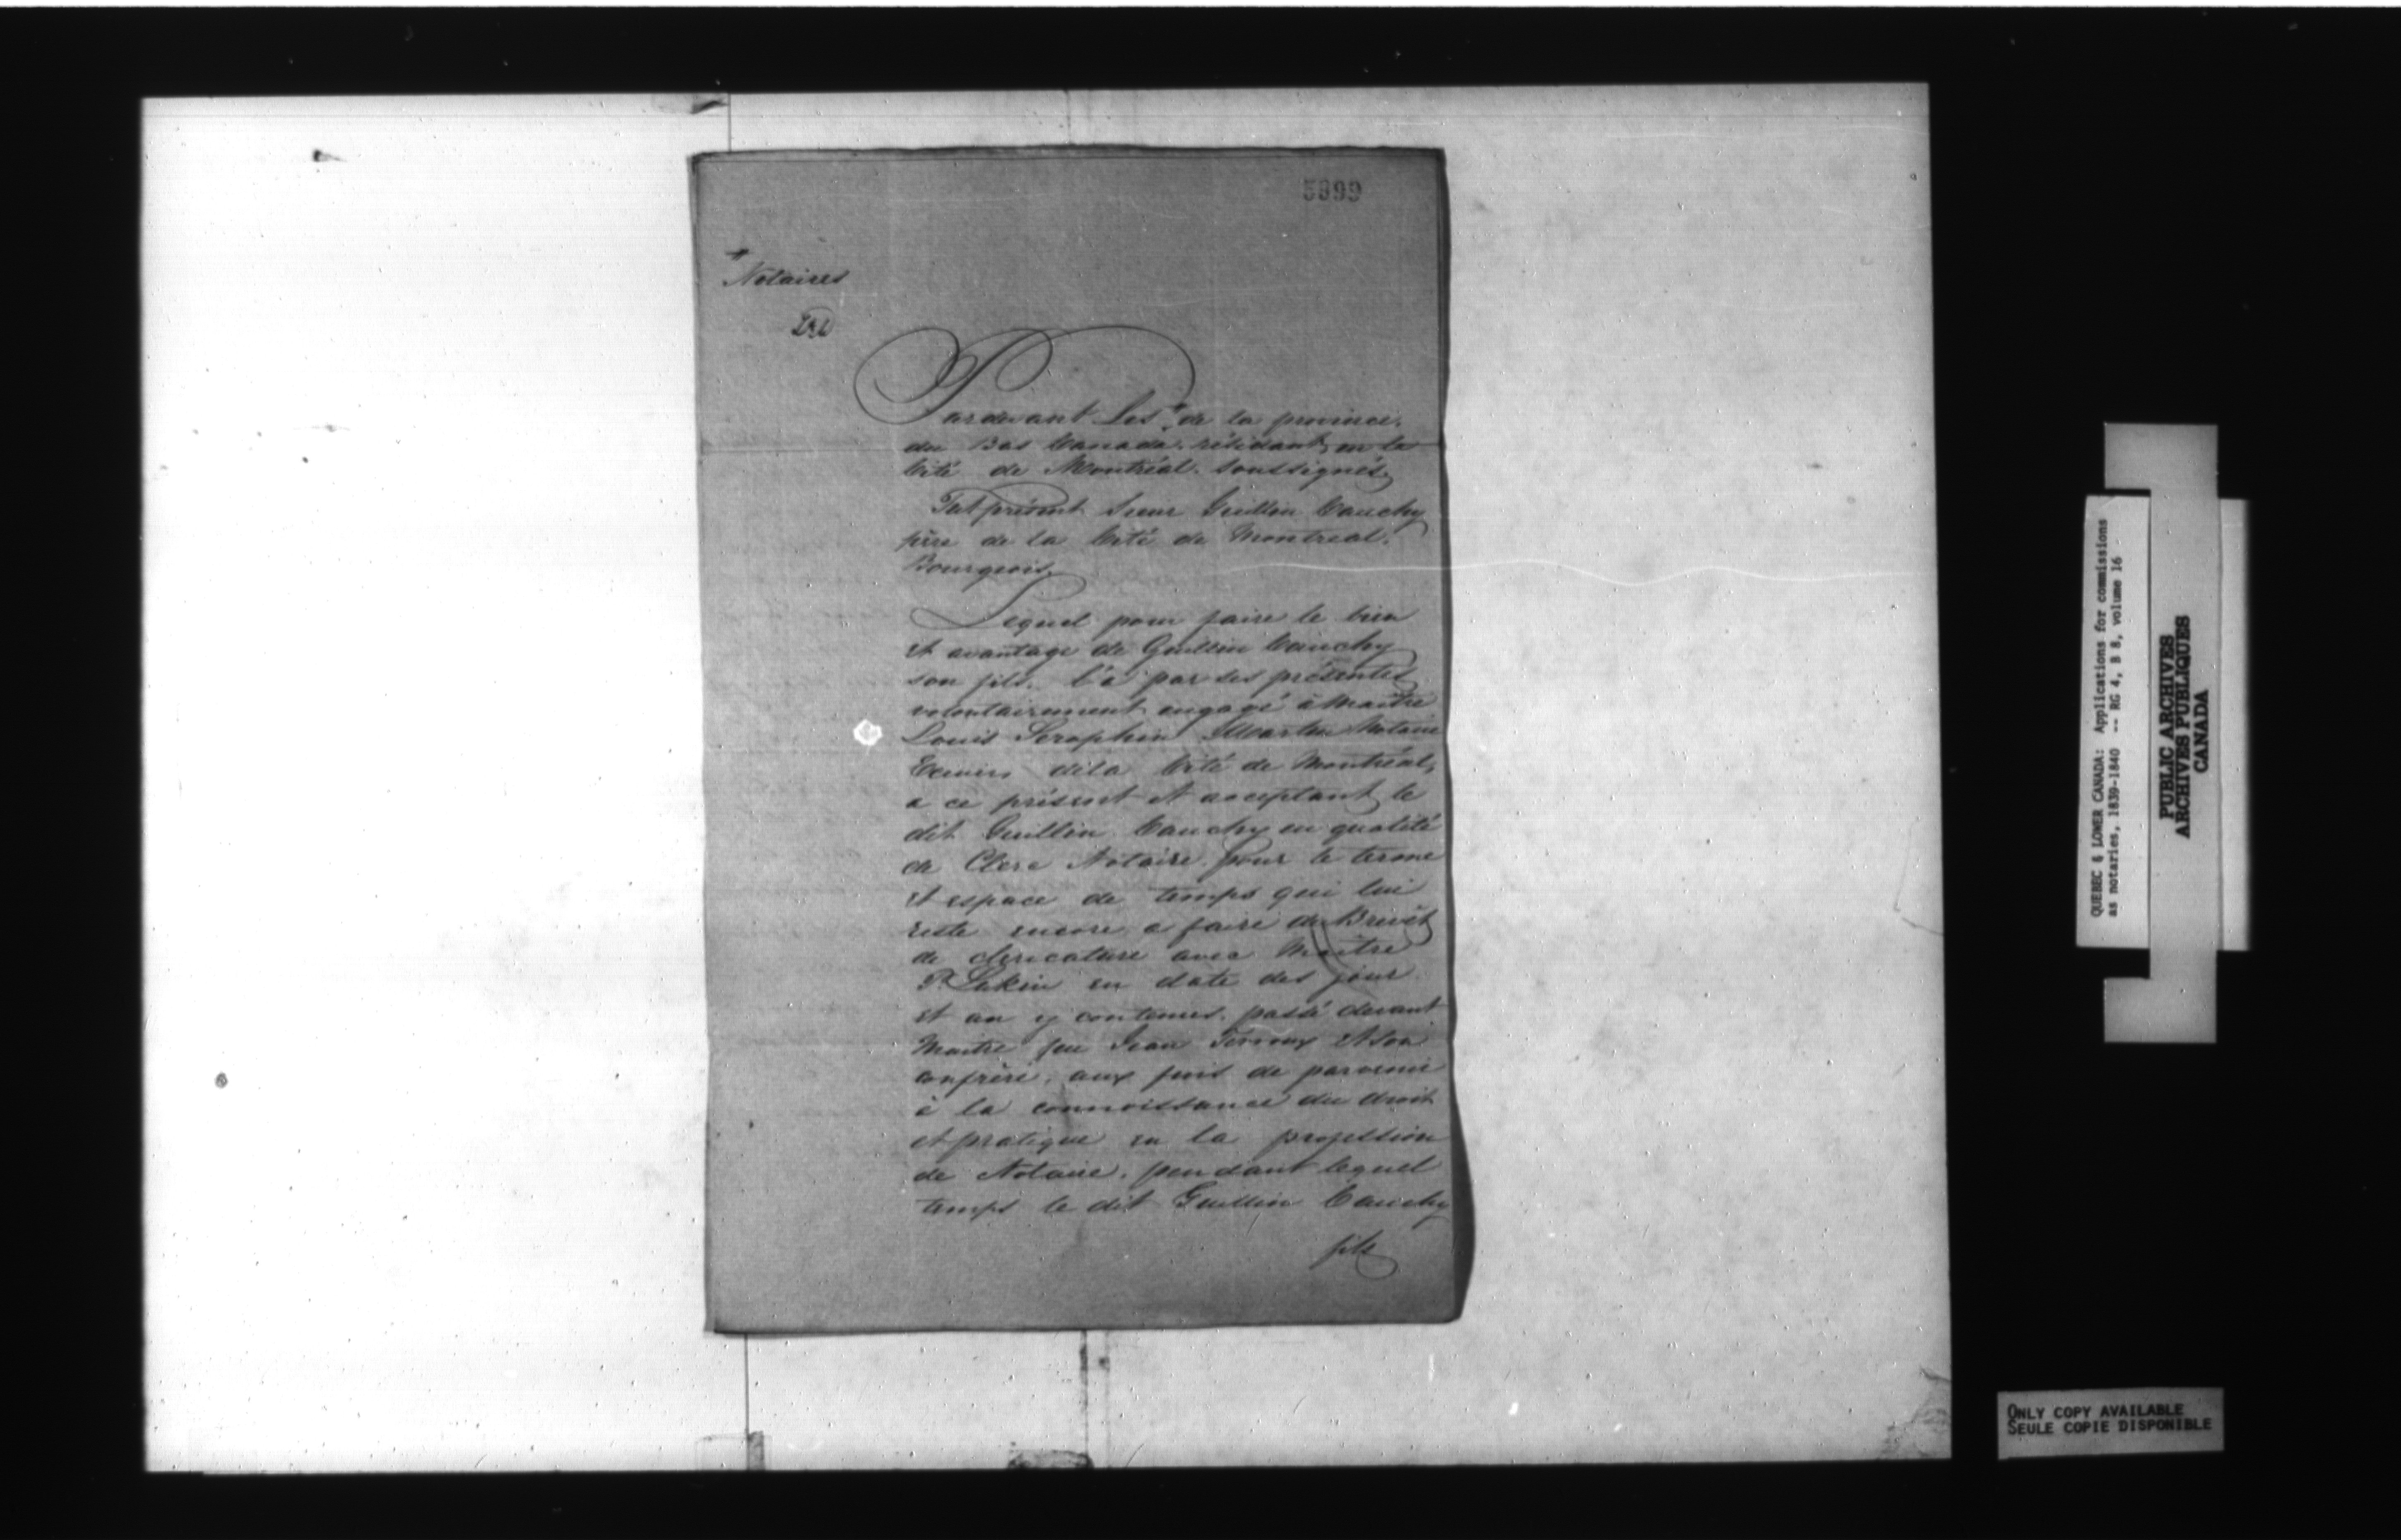 5999
Notaires
Pardevant Les de la province
du Bas Canada. résidant en la
Cité de Montréal. soussignés
Fut présent Sieur Guillin Cauchy
père de la Cité de Montreal.
Bourgeois,
Lequel pour faire le bien
et avantage de Guillin Cauchy
son fils. l'a par ses présentes
volontairement engagé à Maitre
Louis Seraphin Martin Notaire
de la Cité de Montréal,
a ce présent et acceptant le
dit Guillin Cauchy en qualité
de Clerc Notaire. Pour le terme
et espace de temps qui lui
reste encore a faire du Brevêt
de clericature avec Maitre
P. Lukin en date des jour
et an y contenus. passé devant
Maitre feu Jean Terroux et son
confrère, aux fins de parvenir
à la connoissance du droit
et pratique en la profession
de Notaire. pendant lequel
temps le dit Guillin Cauchy
fils
QUEBEC & LOWER CANADA: Applications for commissions
as notaries, 1839-1840 -- RG 4, B 8, volume 16
PUBLIC ARCHIVES
ARCHIVES PUBLIQUES
CANADA
ONLY COPY AVAILABLE
SEULE COPIE DISPONIBLE